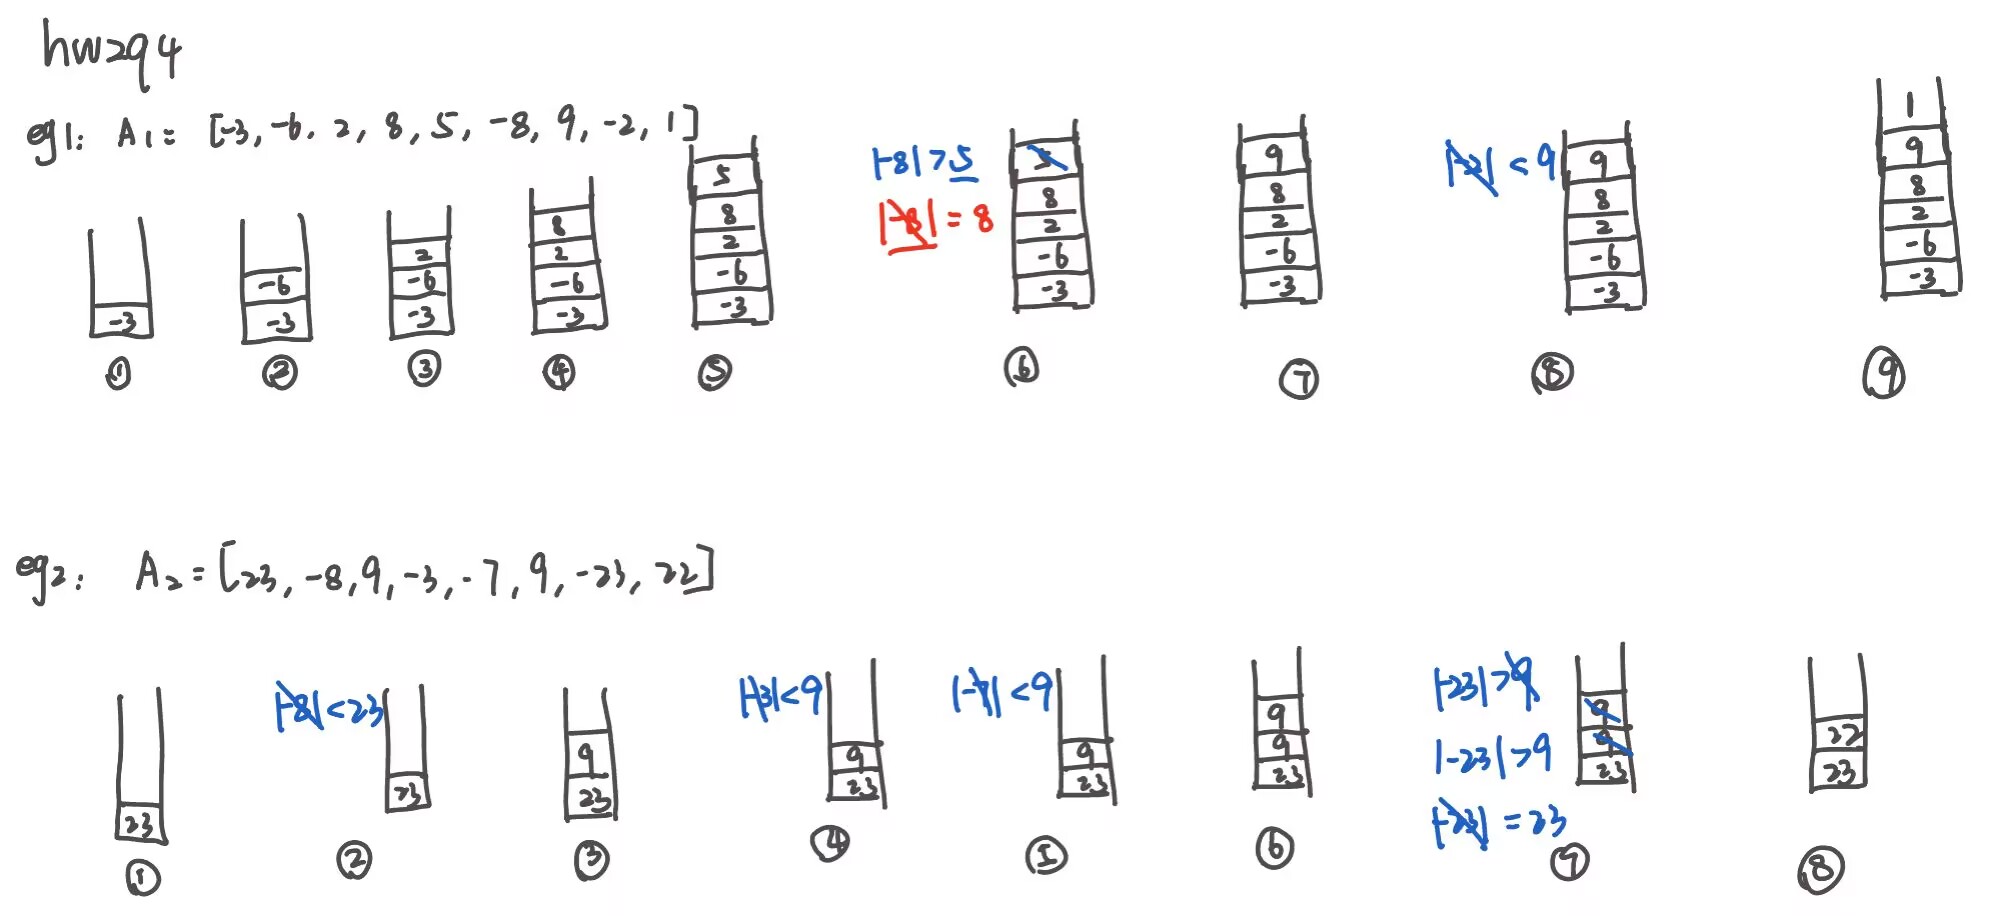 hw2q4
eg1: A1 = [-3, -6, 2, 8, 5, -8, 9, -2, 1]
-3
①
-6
-3
②
2
-6
-3
③
8
2
-6
-3
④
5
8
2
-6
-3
⑤
|-8| > 5
|-8| = 8
5
8
2
-6
-3
⑥
9
8
2
-6
-3
⑦
|-2| < 9
9
8
2
-6
-3
⑧
1
9
8
2
-6
-3
⑨
eg2: A2 = [23, -8, 9, -3, -7, 9, -23, 22]
23
①
|-8| < 23
23
②
9
23
③
|-3| < 9
9
23
④
|-7| < 9
9
23
9
9
23
⑥
|-23| > 9
|-23| > 9
|-23| = 23
9
9
23
⑦
22
23
⑧